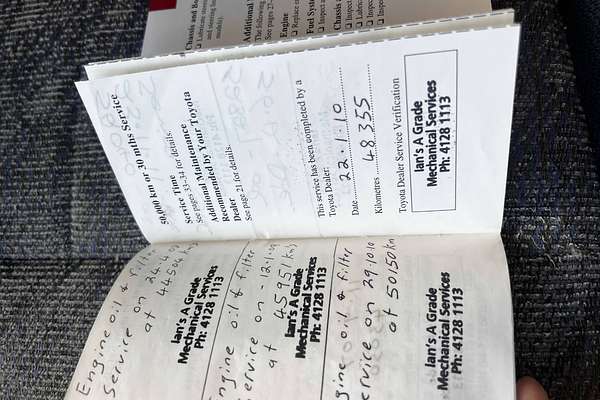 50,000 km or 30 mths Service
Service Time
See pages 33-34 for details.
Additional Maintenance
Recommended by Your Toyota
Dealer
See page 21 for details.
This service has been completed by a
Toyota Dealer:
Date 22.1.10
Kilometres 48355
Toyota Dealer Service Verification
Ian's A Grade
Mechanical Services
Ph: 4128 1113
Engine oil & filter
Service on 24.4.09
at 44504 km
Ian's A Grade
Mechanical Services
Ph: 4128 1113
ngine oil & filter
ervice on - 12.11.09
at 45951 kms
Ian's A Grade
Mechanical Services
Ph: 4128 1113
gine oil & filter
ervice on 29.10.10
at 50150 km
Ian's A Grade
Mechanical Services
Ph: 4128 1113
Chassis and Bo
Additional
The following
See pages 27-
Engine
Replace e
Fuel System
Inspect a
Chassis
Inspect
Lubric
Inspect
Inspect